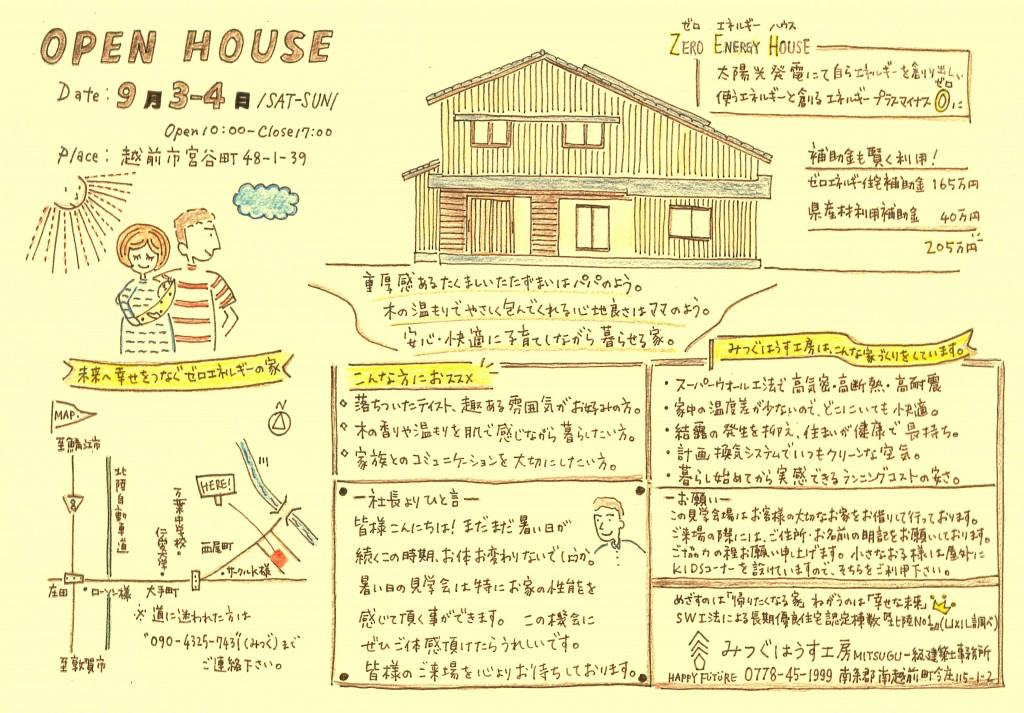 OPEN HOUSE
Date: 9月3-4日 /SAT-SUN/
Open10:00-Close17:00
Place: 越前市宮谷町48-1-39
ゼロ エネルギー ハウス
ZERO ENERGY HOUSE
太陽光発電にて自らエネルギーを創り出し、
使うエネルギーと創るエネルギープラスマイナス0に
ゼロ
補助金も賢く利用!
ゼロエネルギー住宅補助金 165万円
県産材利用補助金 40万円
205万円
重厚感あるたくましいたたずまいはパパのよう。
木の温もりでやさしく包んでくれる心地良さはママのよう。
安心・快適に子育てしながら暮らせる家。
未来へ幸せをつなぐゼロエネルギーの家
MAP.
N
至鯖江市
8
北陸自動車道
万葉中学校
仁愛大学
HERE!
西尾町
サークルK様
庄田
ローソン様
大手町
至敦賀市
※道に迷われた方は
"090-4325-7431(みつぐ)まで
ご連絡下さい。
こんな方におススメ
落ちついたテイスト、趣ある雰囲気がお好みの方。
木の香りや温もりを肌で感じながら暮らしたい方。
家族とのコミュニケーションを大切にしたい方。
ー社長よりひと言ー
皆様こんにちは!まだまだ暑い日が
続くこの時期、お体お変わりないでしょうか。
暑い日の見学会は特にお家の性能を
感じて頂く事ができます。この機会に
ぜひご体感頂けたらうれしいです。
皆様のご来場を心よりお待ちしております。
みつぐはうす工房は、こんな家づくりをしています。
・スーパーウォール工法で高気密・高断熱・高耐震
・家中の温度差が少ないので、どこにいても快適。
・結露の発生を抑え、住まいが健康で長持ち。
・計画換気システムでいつもクリーンな空気。
・暮らし始めてから実感できるランニングコストの安さ。
ーお願いー
この見学会場はお客様の大切なお家をお借りして行っております。
ご来場の際には、ご住所・お名前の明記をお願いしております。
ご協力の程お願い申し上げます。小さなお子様は屋外に
KIDSコーナーを設けていますので、そちらをご利用下さい。
めざすのは「帰りたくなる家」 ねがうのは「幸せな未来」
SW工法による長期優良住宅認定棟数 北陸No1(LIXIL調べ)
みつぐはうす工房 MITSUGU一級建築士事務所
HAPPY FUTURE 0778-45-1999 南条郡南越前町今庄115-1-2